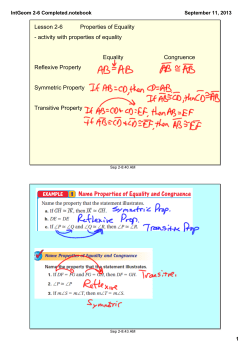 IntGeom 2-6 Completed.notebook
September 11, 2013
Lesson 2-6 Properties of Equality
- activity with properties of equality
Equality Congruence
Reflexive Property AB = AB AB ≅ AB
Symmetric Property If AB = CD, then CD = AB.
If AB ≅ CD, then CD ≅ AB
Transitive Property If AB = CD + CD = EF, then AB = EF
If AB ≅ CD + CD ≅ EF, then AB ≅ EF
Sep 2-8:40 AM
EXAMPLE 1 Name Properties of Equality and Congruence
Name the property that the statement illustrates.
a. If GH ≅ JK, then JK ≅ GH. Symmetric Prop.
b. DE = DE. Reflexive Prop.
c. If ∠P ≅ ∠Q and ∠Q ≅ ∠R, then ∠P ≅ ∠R. Transitive Prop
Name Properties of Equality and Congruence
Name the property that the statement illustrates.
1. If DF = FG and FG = GH, then DF = GH. Transitive.
2. ∠P ≅ ∠P Reflexive
3. If m∠S = m∠T, then m∠T = m∠S.
Symmetric
Sep 2-8:43 AM
1